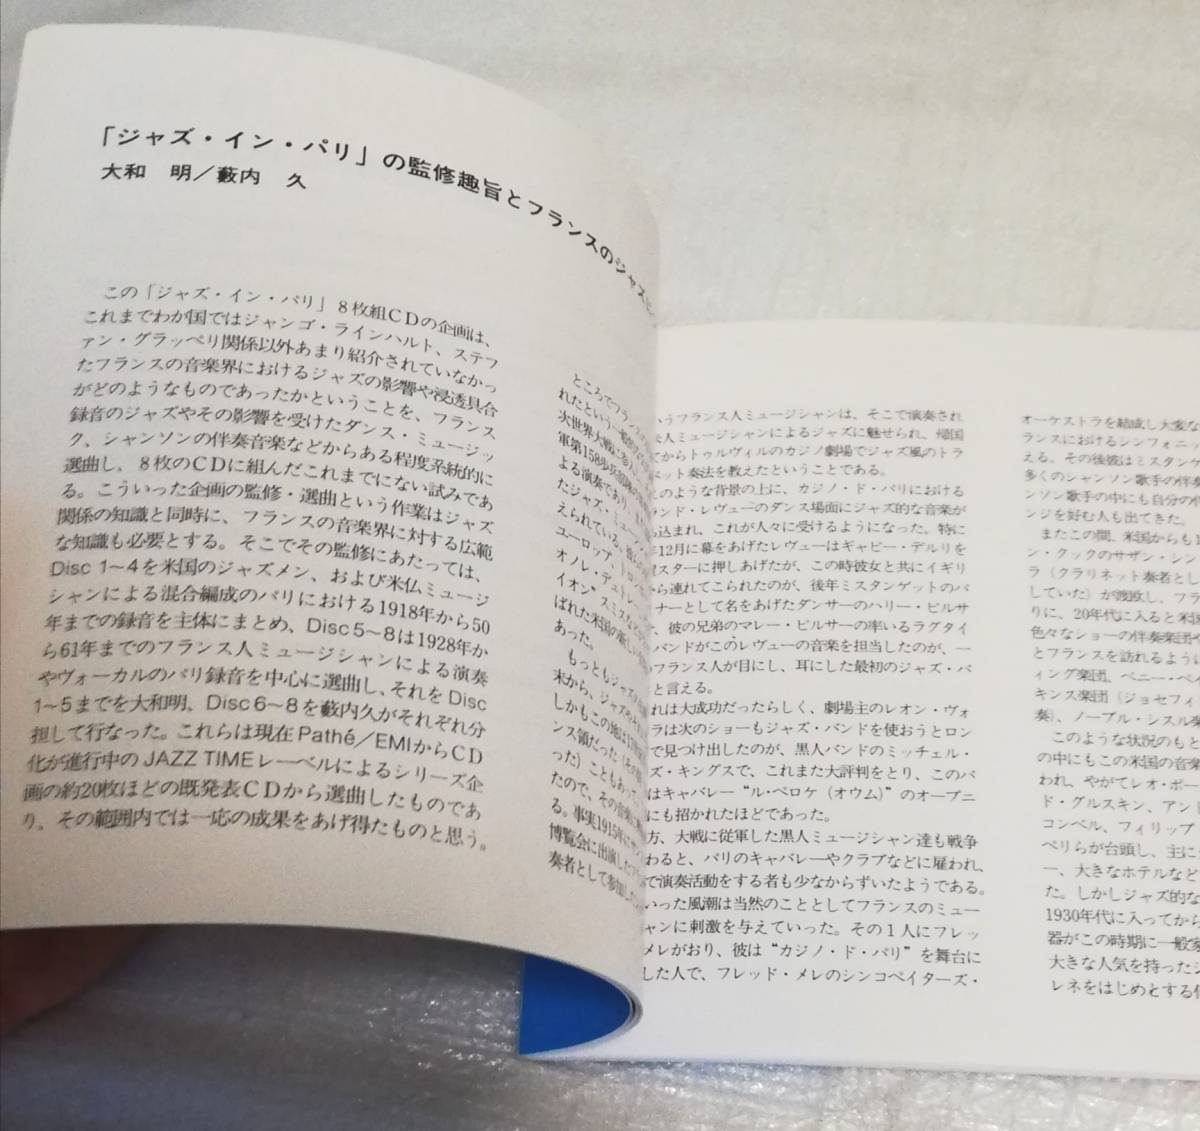 「ジャズ・イン・パリ」の監修趣旨とフランスのジャズ
大和　明／藪内　久
この「ジャズ・イン・パリ」８枚組ＣＤの企画は、
これまでわが国ではジャンゴ・ラインハルト、ステフ
ァン・グラッペリ関係以外あまり紹介されていなかっ
たフランスの音楽界におけるジャズの影響や浸透具合
がどのようなものであったかということを、フランス
録音のジャズやその影響を受けたダンス・ミュージッ
ク、シャンソンの伴奏音楽などからある程度系統的に
選曲し、８枚のＣＤに組んだこれまでにない試みであ
る。こういった企画の監修・選曲という作業はジャズ
関係の知識と同時に、フランスの音楽界に対する広範
な知識も必要とする。そこでその監修にあたっては、
Disc 1〜4を米国のジャズメン、および米仏ミュージ
シャンによる混合編成のパリにおける1918年から50
年までの録音を主体にまとめ、Disc 5〜8は1928年か
ら61年までのフランス人ミュージシャンによる演奏
やヴォーカルのパリ録音を中心に選曲し、それをDisc
1〜5までを大和明、Disc 6〜8を藪内久がそれぞれ分
担して行なった。これらは現在Pathé／EMIからＣＤ
化が進行中のJAZZ TIMEレーベルによるシリーズ企
画の約20枚ほどの既発表ＣＤから選曲したものであ
り、その範囲内では一応の成果をあげ得たものと思う。
ところでフランス
れたという一般的な
次世界大戦に参
軍第158歩兵
よる演奏であり
たジャズ・ミュー
えられている。
ユーロップ、
オノレ・デュトレ
イオン"スミス
ばれた米国の新しい
あった。
もっともジャズ
末から、ジャズの
しかもこの地は
ンス領だった
った）こともあって
たので、その音楽に
る。事実1915年に
博覧会に出演した
奏者として参加した
いうフランス人ミュージシャンは、そこで演奏され
人ミュージシャンによるジャズに魅せられ、帰国
てからトゥルヴィルのカジノ劇場でジャズ風のトラ
ペット奏法を教えたということである。
このような背景の上に、カジノ・ド・パリにおける
ランド・レヴューのダンス場面にジャズ的な音楽が
ち込まれ、これが人々に受けるようになった。特に
年12月に幕をあげたレヴューはギャビー・デルリを
スターに押しあげたが、この時彼女と共にイギリ
から連れてこられたのが、後年ミスタンゲットのパ
ナーとして名をあげたダンサーのハリー・ピルサ
、彼の兄弟のマレー・ピルサーの率いるラグタイ
バンドがこのレヴューの音楽を担当したのが、一
のフランス人が目にし、耳にした最初のジャズ・バ
と言える。
れは大成功だったらしく、劇場主のレオン・ヴォ
ラは次のショーもジャズ・バンドを使おうとロン
で見つけ出したのが、黒人バンドのミッチェル・
ズ・キングスで、これまた大評判をとり、このバ
はキャバレー“ル・ペロケ（オウム）”のオープニ
にも招かれたほどであった。
方、大戦に従軍した黒人ミュージシャン達も戦争
わると、パリのキャバレーやクラブなどに雇われ、
で演奏活動をする者も少なからずいたようである。
いった風潮は当然のこととしてフランスのミュー
シャンに刺激を与えていった。その１人にフレッ
メレがおり、彼は“カジノ・ド・パリ”を舞台に
した人で、フレッド・メレのシンコペイターズ・
オーケストラを結成し大変な
ランスにおけるシンフォニ
える。その後彼はミスタンゲ
多くのシャンソン歌手の伴奏
ンソン歌手の中にも自分の
ンジを好む人も出てきた。
またこの間、米国からも
ン・クックのサザン・シン
ラ（クラリネット奏者として
していた）が渡欧し、フラ
りに、20年代に入ると米国
色々なショーの伴奏楽団や
とフランスを訪れるように
ィング楽団、ベニー・ペイ
キンス楽団（ジョセフィ
奏）、ノーブル・シスル楽
このような状況のもと
の中にもこの米国の音楽
われ、やがてレオ・ポー
ド・グルスキン、アンド
コンベル、フィリップ
ペリらが台頭し、主に
ー、大きなホテルなど
た。しかしジャズ的な
1930年代に入ってから
器がこの時期に一般家
大きな人気を持ったジ
レネをはじめとする